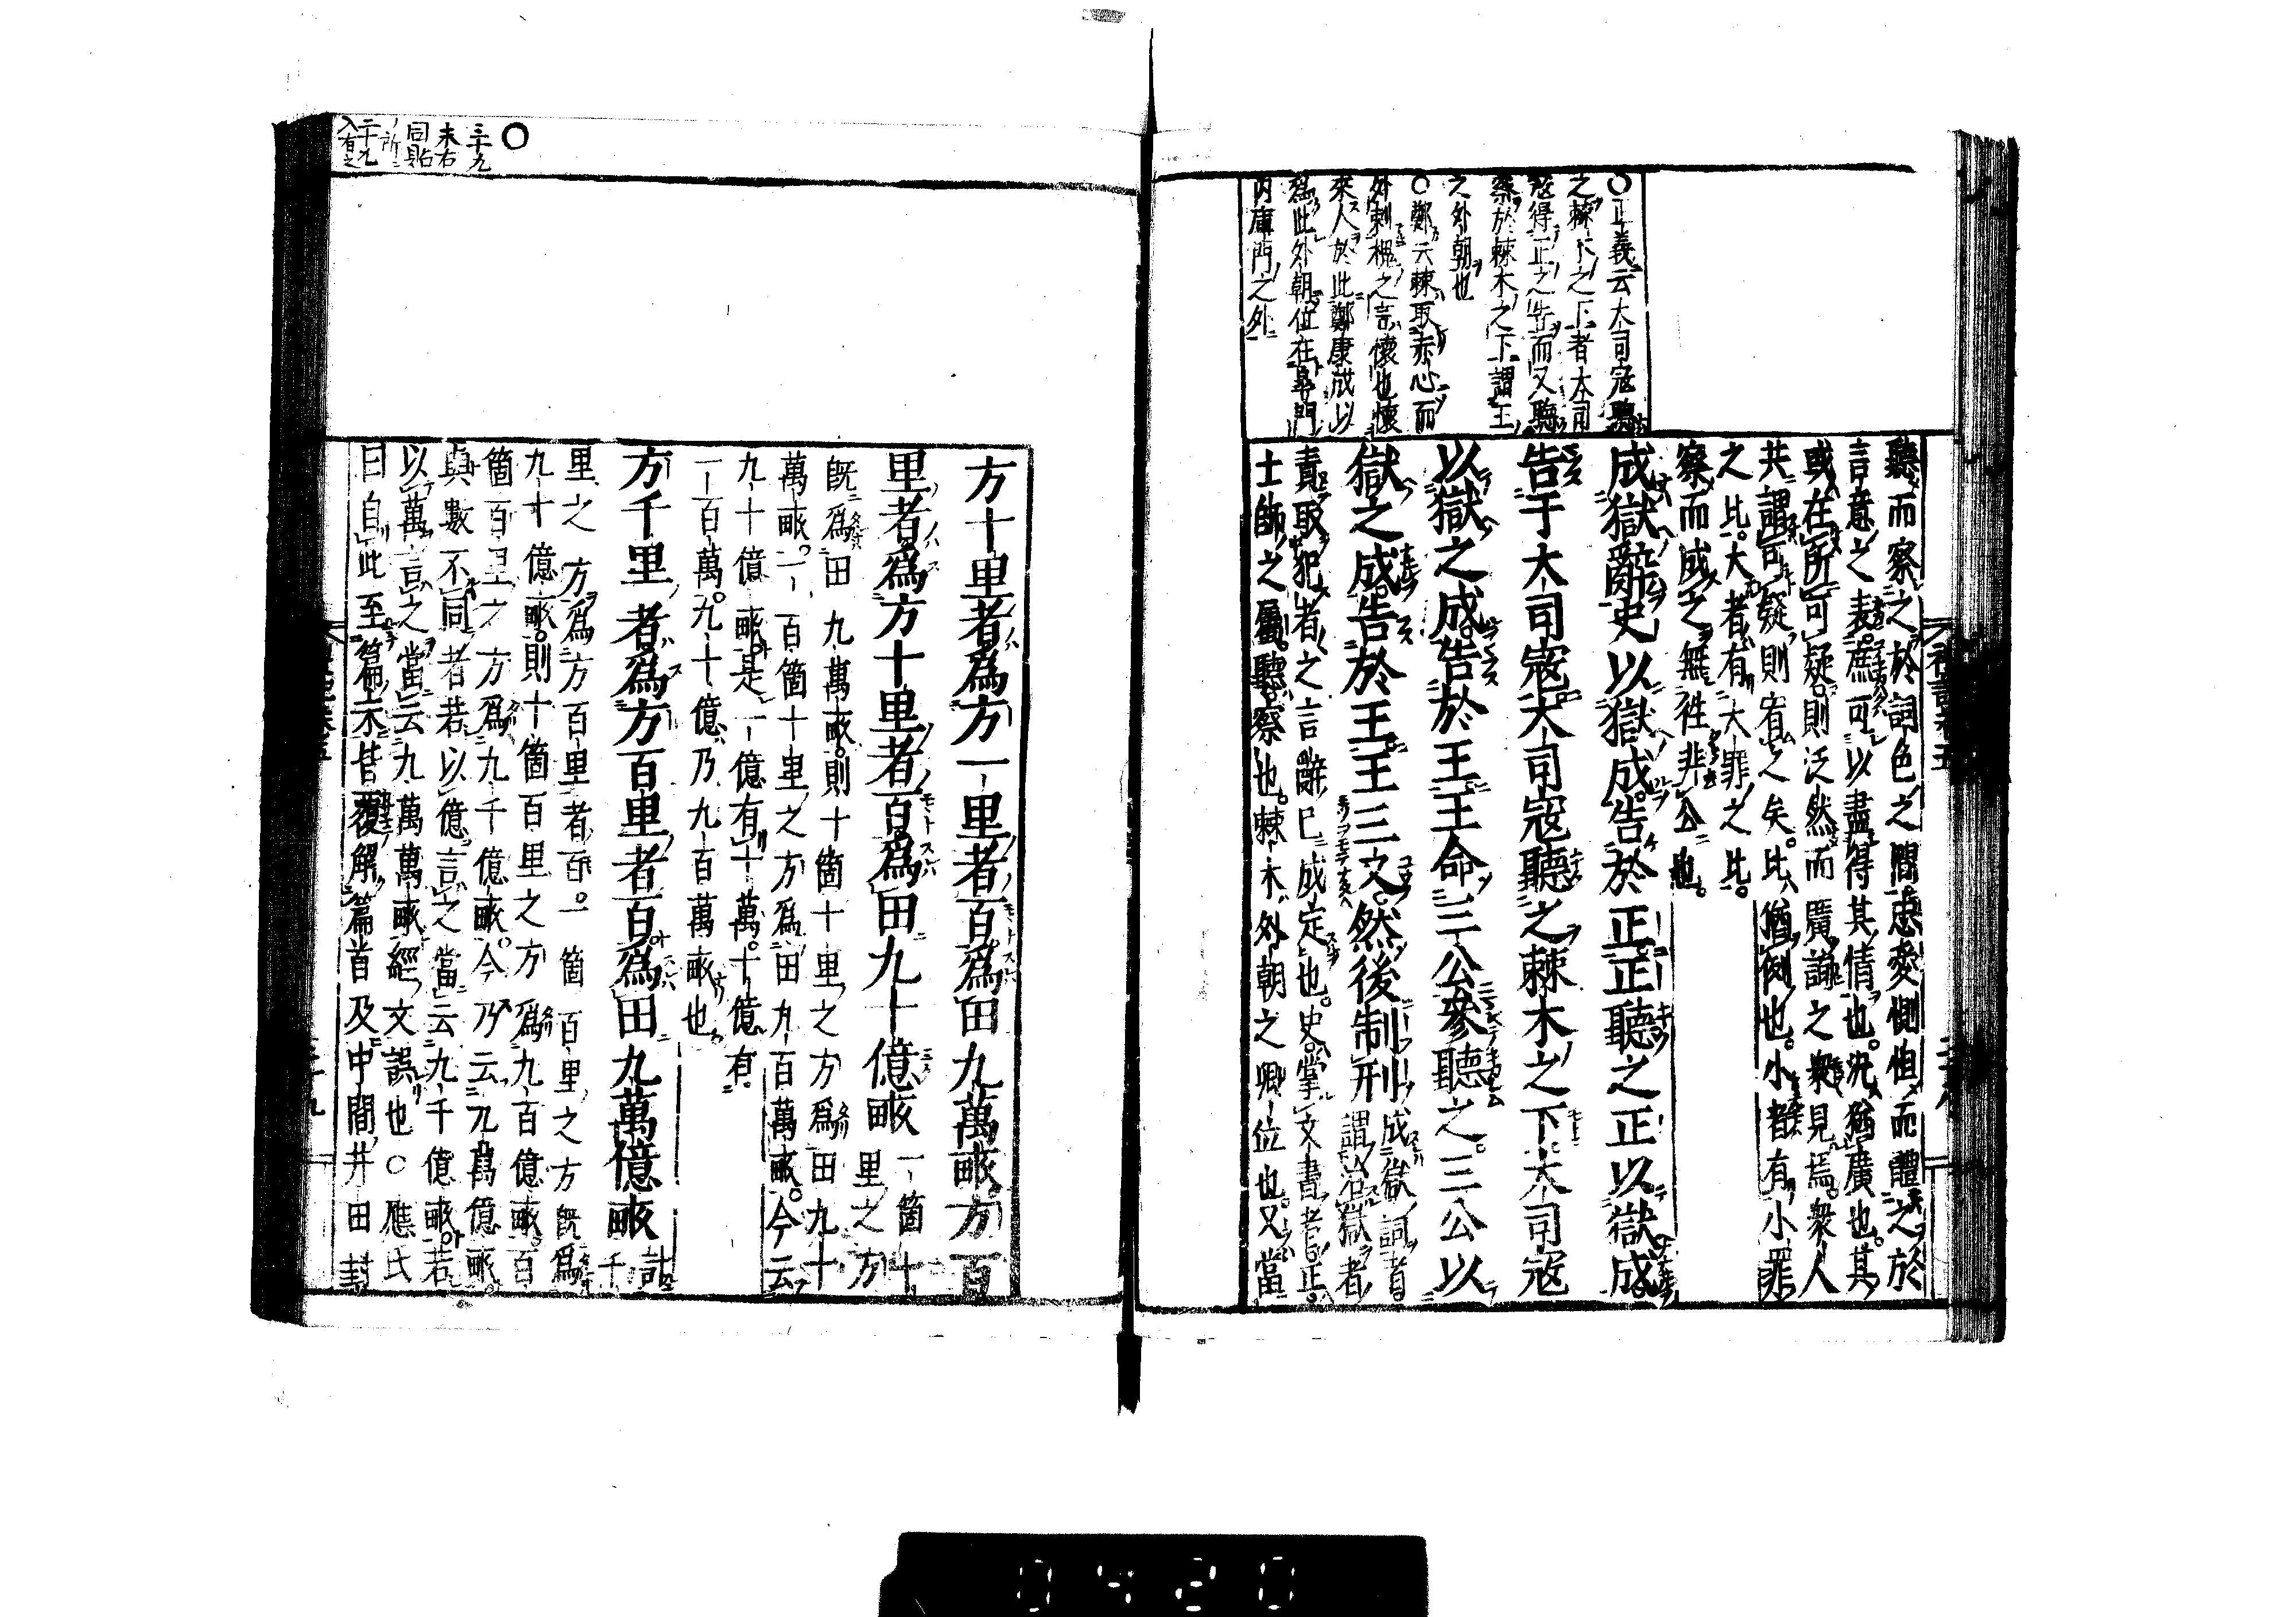 ○正義云大司寇聽
之棘木之下者大司
寇得正之告而又聽
察於棘木之下謂王
之外朝也
○鄭云棘取赤心而
外刺槐之言懷也懷
來人於此鄭康成以
爲此外朝位在皐門
内庫門之外
聽而察之於詞色之間忠愛惻怛而體之於
言意之表庶可以盡得其情也況猶廣也其
或在所可疑則泛然而廣謀之衆見焉衆人
共謂可疑則宥之矣比猶例也小者有小罪
之比大者有大罪之比
察而成之無徃非公也
成獄辭史以獄成告於正正聽之正以獄成
告于大司寇大司寇聽之棘木之下大司寇
以獄之成告於王王命三公參聽之三公以
獄之成告於王王三又然後制刑
成獄詞者
謂治獄者
責取犯者之言辭已成定也史掌文書者正
士師之屬聽察也棘木外朝之卿位也又當
○
三十九
末右
同貼
方十里者爲方一里者百爲田九萬畝方百
里者爲方十里者百爲田九十億畝
一箇十
里之方
旣爲田九萬畝則十箇十里之方爲田九十
萬畝一百箇十里之方爲田九百萬畝今云
九十億畝是一億有十萬十億有
一百萬九十億乃九百萬畝也
方千里者爲方百里者百爲田九萬億畝
計
千
里之方爲方百里者百一箇百里之方旣爲
九十億畝則十箇百里之方爲九百億畝百
箇百里之方爲九千億畝今乃云九萬億畝
與數不同者若以億言之當云九千億畝若
以萬言之當云九萬萬畝經文誤也○應氏
曰自此至篇末皆覆解篇首及中間井田封